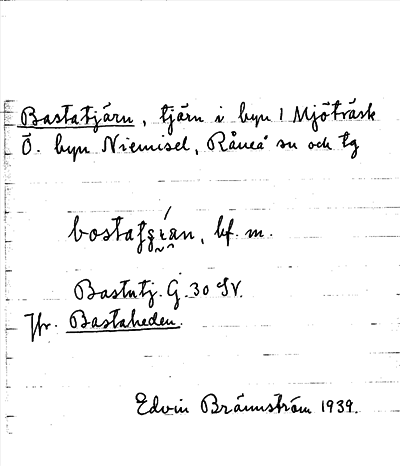 Bastatjärn, tjärn i byn 1 Mjöträsk
Ö. byn Niemisel, Råneå sn och tg
bostaʃʂián, bf. m.
Bastatj. G. 30 SV.
Jfr. Bastaheden.
Edvin Brännström 1939.